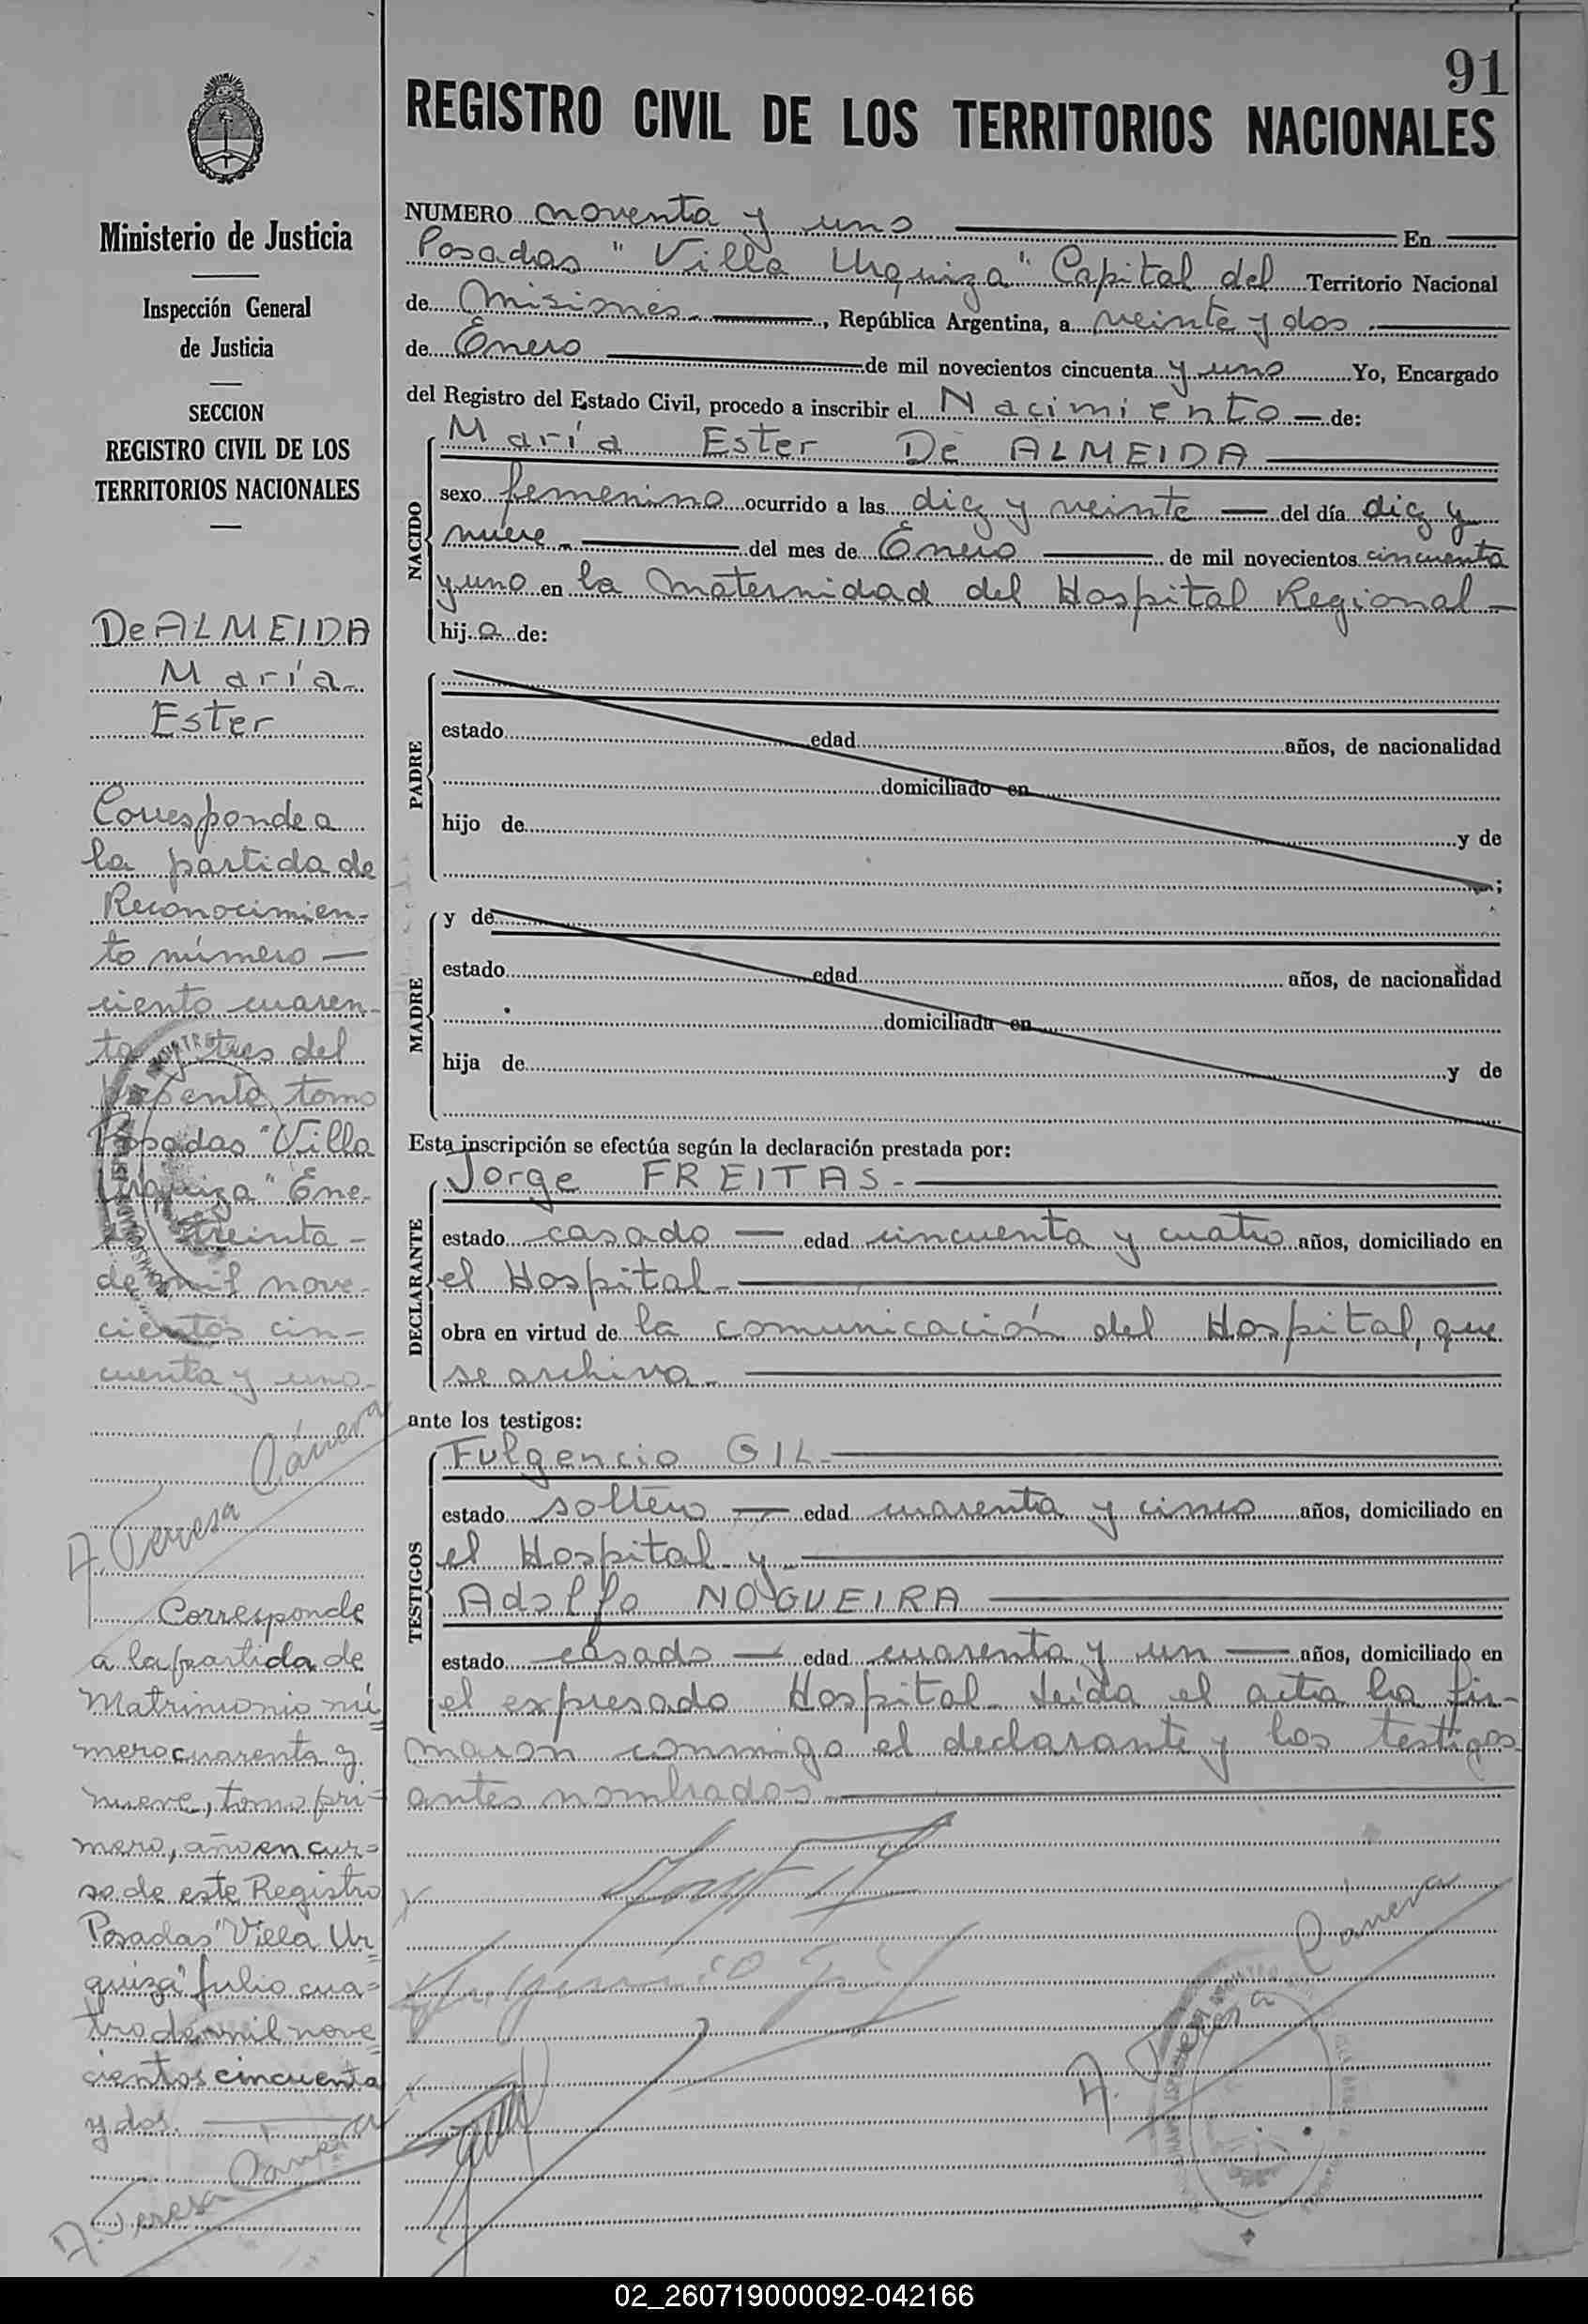 91
REGISTRO CIVIL DE LOS TERRITORIOS NACIONALES
Ministerio de Justicia
Inspección General
de Justicia
SECCION
REGISTRO CIVIL DE LOS
TERRITORIOS NACIONALES
De ALMEIDA
María
Ester
Corresponde a
la partida de
Reconocimien-
to número —
ciento cuaren-
ta y tres del
presente tomo
Posadas "Villa
Urquiza" Ene-
ro treinta -
de mil nove-
cientos cin-
cuenta y uno
A. Teresa Cánera
Corresponde
a la partida de
Matrimonio nú
mero cuarenta y
nueve, tomo pri=
mero, año en cur=
so de este Registro
Posadas "Villa Ur
quiza" Julio cua=
tro de mil nove
cientos cincuenta
y dos.
A. Teresa Cánera
NUMERO noventa y uno En
Posadas "Villa Urquiza" Capital del Territorio Nacional
de Misiones , República Argentina, a veinte y dos
de Enero de mil novecientos cincuenta y uno Yo, Encargado
del Registro del Estado Civil, procedo a inscribir el Nacimiento de:
NACIDO
María Ester De ALMEIDA
sexo femenino ocurrido a las diez y veinte — del día diez y
nueve del mes de Enero de mil novecientos cincuenta
y uno en la Maternidad del Hospital Regional
hija de:
PADRE
estado edad años, de nacionalidad
domiciliado en
hijo de y de
;
MADRE
y de
estado edad años, de nacionalidad
domiciliada en
hija de y de
Esta inscripción se efectúa según la declaración prestada por:
DECLARANTE
Jorge FREITAS
estado casado — edad cincuenta y cuatro años, domiciliado en
el Hospital
obra en virtud de la comunicación del Hospital, que
se archiva
ante los testigos:
TESTIGOS
Fulgencio GIL
estado soltero — edad cuarenta y cinco años, domiciliado en
el Hospital y
Adolfo NOGUEIRA
estado casado — edad cuarenta y un — años, domiciliado en
el expresado Hospital. Leída el acta la fir-
maron conmigo el declarante y los testigos
antes nombrados
Fulgencio Gil
A. Teresa Cánera
02_260719000092-042166